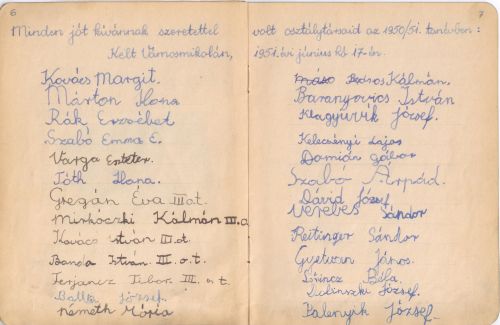 6
Minden jót kívánnak szeretettel
Kelt Vámosmikolán,
Kovács Margit.
Márton Ilona
Rák Erzsébet
Szabó Emma E.
Varga Eszter.
Tóth Ilona.
Gregán Éva III.ot.
Mirkóczki Kálmán III.o
Kovács István III.ot.
Banda István. III. o. t.
Ferjancz Tibor. III. o. t.
Balla József.
németh Mária
7
volt osztálytársaid az 1950/51. tanévben:
1951. évi június hó 17.-én.
Kálmán.
Baranyovics István
József.
Kelecsényi Lajos
Damián Gábor
Szabó Árpád.
Dávid József
Verebes Sándor
Reitinger Sándor
Gyetvan János.
Lőrincz Béla.
József.
Palenyik József.